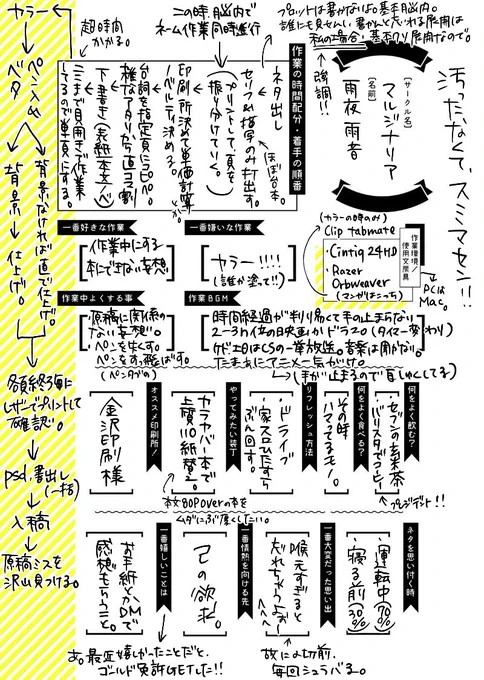 汚ったなくて、スミマセン!!
(サークル名)
マルジナリア
(名前)
雨夜 雨者
プロットは書かないな。基本脳内。
私の場合、基本ワリと展開なので。
←強調!!
この時、脳内で
ネーム作業同時進行
作業の時間配分・着手の順番
ネタ出し
セリフ&描写のみ打出す。
ほぼ台本。
(プリントして、頁を
振り分けていく。)
印刷所決めて単価計算。
ノベルティ決める。
とか。
台詞を指定頁にコピペ。
雑なアタリから直コマ割
下書き(実紙本文ノベ)
ここまで見開きで作業
してるので単頁にする。
超時間
かかる。
カラー
ペン入れ
ベタ
背景なければ直で仕上げ。
背景
仕上げ。
各項終了毎に
レーザーでプリントして
確認。
psd.書出し
(一括)
入稿
原稿ミスを
沢山見つける。
作業環境/
使用文房具
(カラーの時のみ)
Clip tabmate
・Cintiq 24HD
・Razer
Orbweaver
(マンガはこっち)
PCは
Mac。
一番嫌いな作業
カラー!!!!
(誰か塗って!!)
一番好きな作業
作業中にする
本にできない妄想。
作業BGM
時間経過が判り易くて手の止まらない
2〜3h位の映画かドラマ。(タイマー変わり)
ケド五日はCSの一挙放送。音楽は聞かない。
たまぁにアニメ一気がけ。
(手が止まるので自しゅくしてる)
作業中よくする事
原稿に関係の
ない妄想。
ペンを失くす。
ペンをすっ飛ばす。
(ペンダコ)
何をよく飲む?
セブンの玄米茶
バリスタでコーヒー
プレジデント!!
何をよく食べる?
その時
ハマってるモノ。
リフレッシュ方法
ドライブ
家スロひたすら
ぶん回す。
やってみたい装丁
カラヤバー本で
上質110紙替え。
本文80P Overの本を
ムダにぶ厚くしたい。
オススメ印刷所!
金沢印刷様
ネタを思い付く時
・運転中(70%)
・寝る前(30%)
一番大変だった思い出
喉元すぎると
忘れちゃうよぉー
故に〆切前、
毎回シュラバる。
一番情熱を向ける先
己の欲求。
一番嬉しいことは
お手紙とかDMで
感想もらうこと。
あ。最近嬉しかったことだと、
ゴールド免許GETした!!